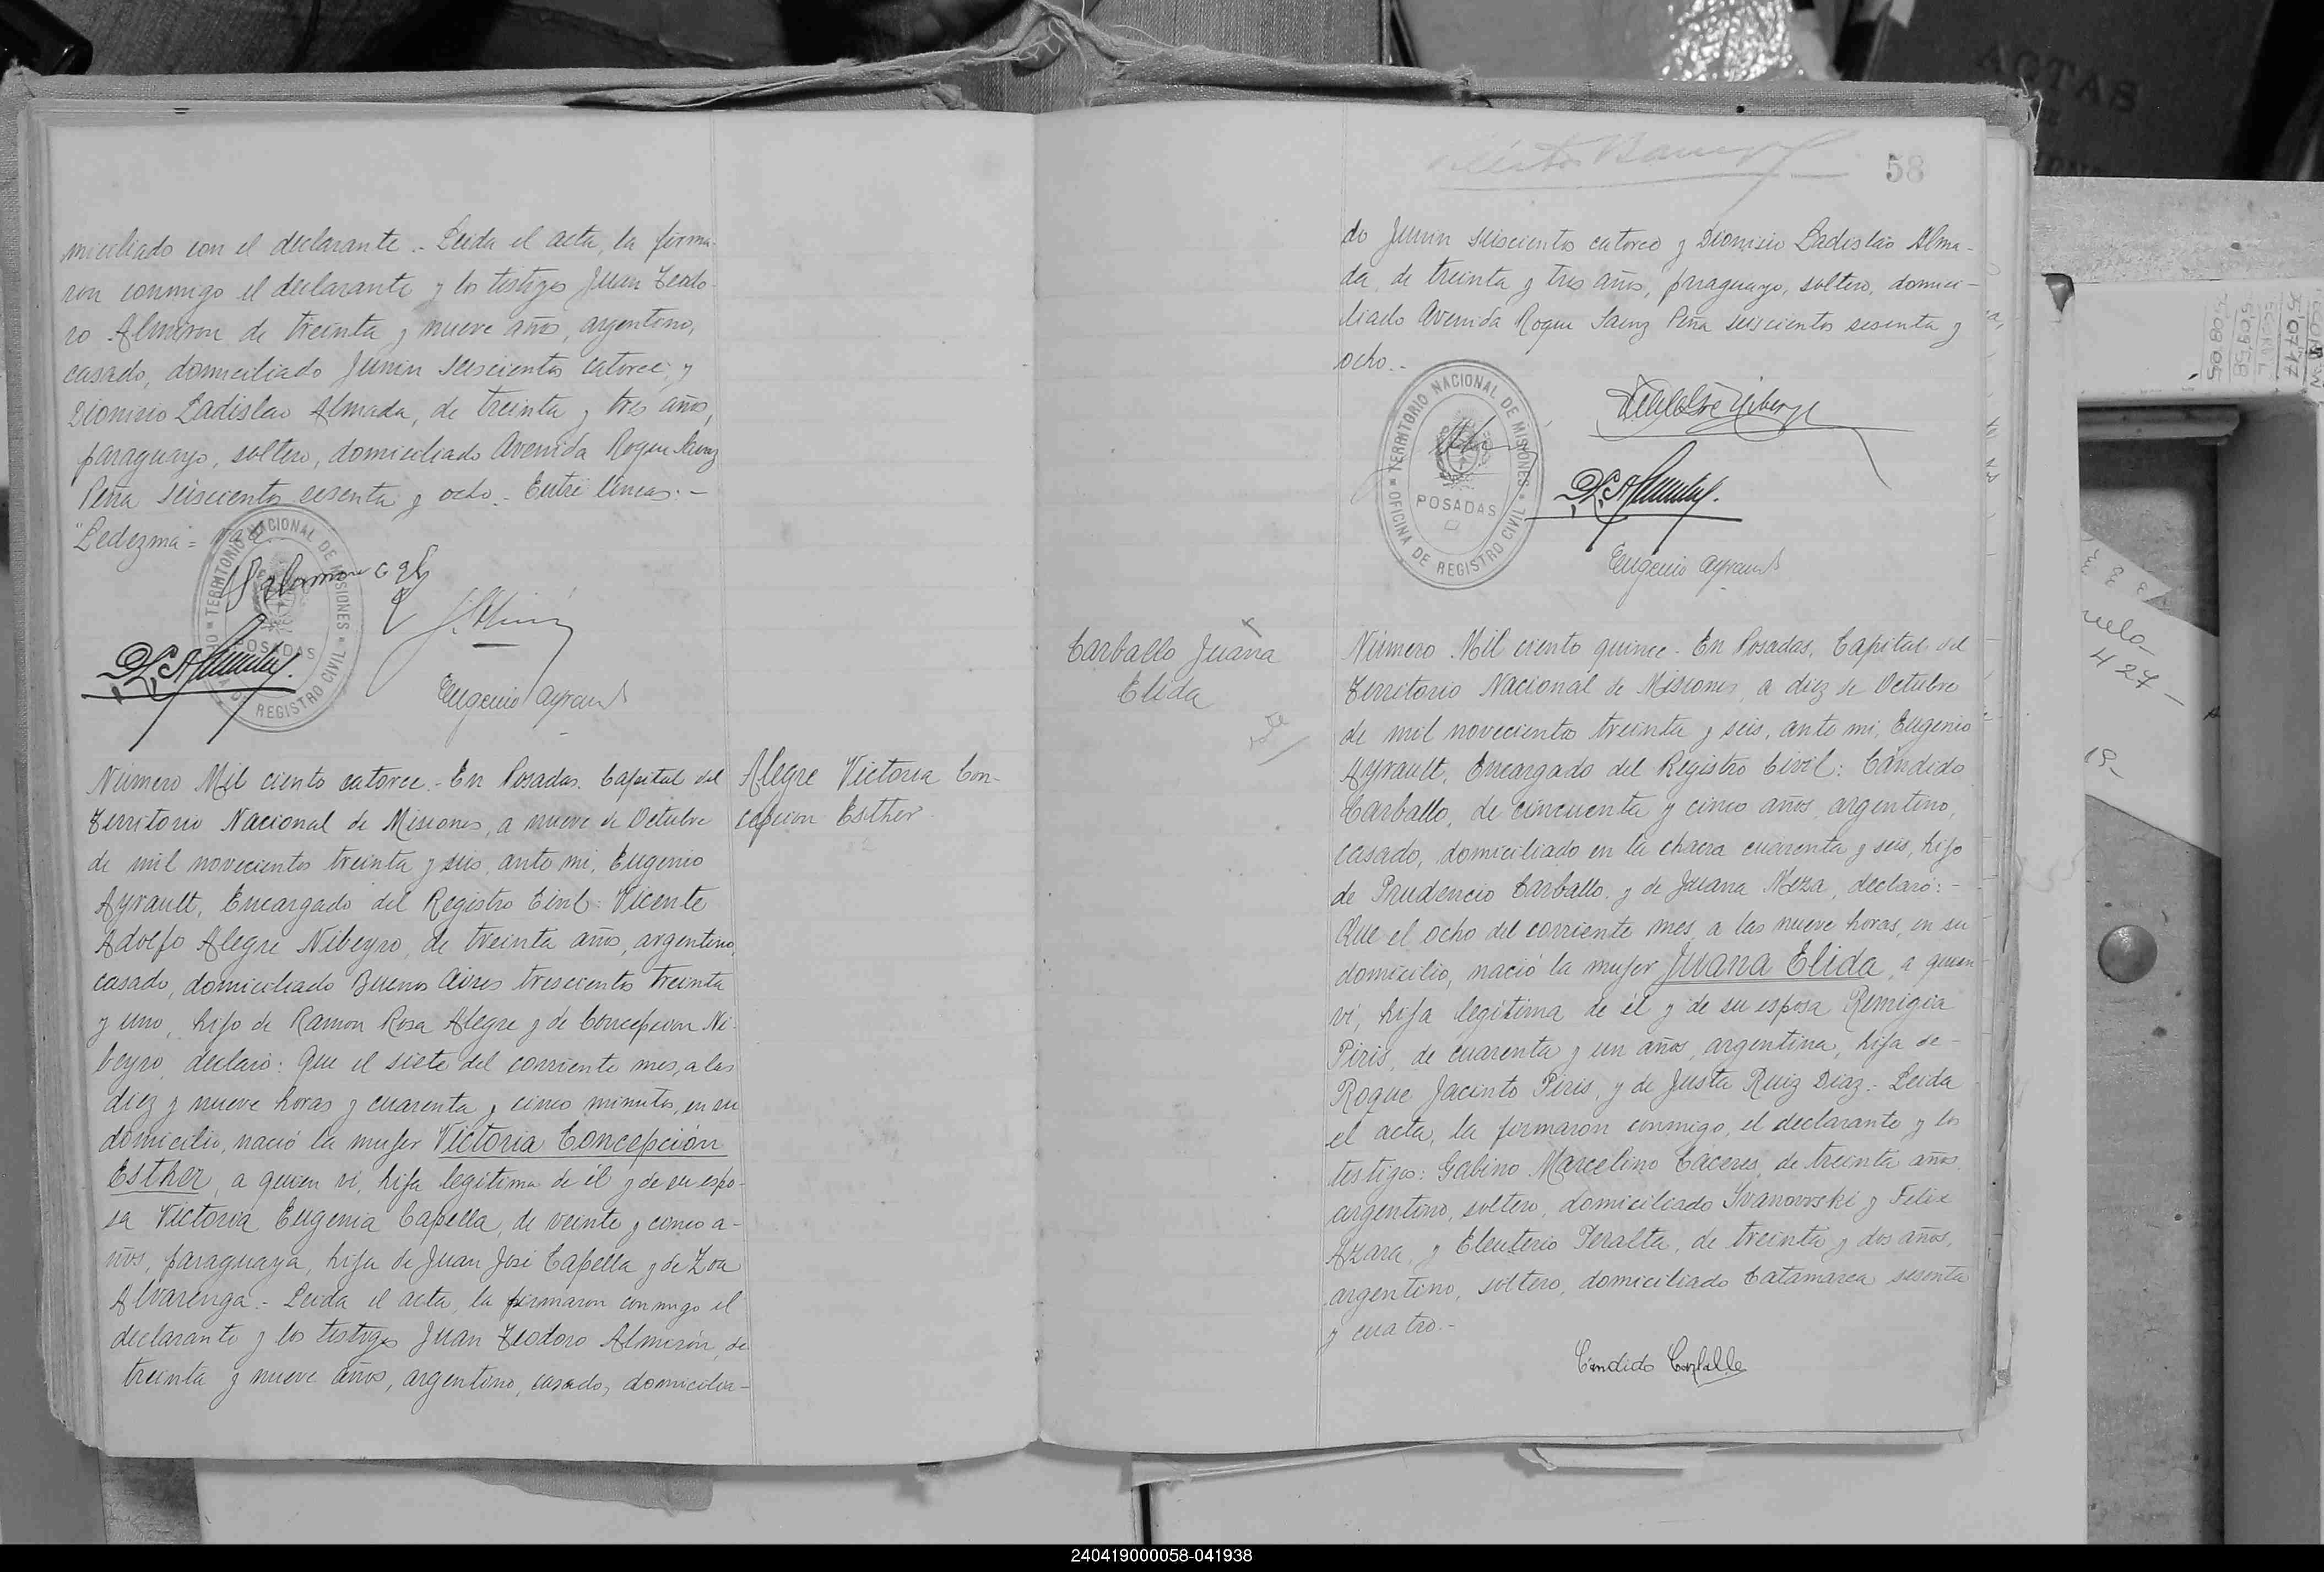 miciliado con el declarante.- Leida el acta, la firma-
ron conmigo el declarante y los testigos Juan Teodo-
ro Almiron de treinta y nueve años, argentino,
casado, domiciliado Junin seiscientos catorce, y
Dionicio Ladislao Almada, de treinta y tres años,
paraguayo, soltero, domiciliado Avenida Roque Saenz
Peña seiscientos sesenta y ocho.- Entre lineas:-
"Ledezma = vale
TERRITORIO NACIONAL DE MISIONES
POSADAS
REGISTRO CIVIL
Eugenio Ayrault
Número Mil ciento catorce.- En Posadas. Capital del
Territorio Nacional de Misiones, a nueve de Octubre
de mil novecientos treinta y seis, ante mi, Eugenio
Ayrault, Encargado del Registro Civil: Vicente
Adolfo Alegre Nibeyro, de treinta años, argentino,
casado, domiciliado Buenos Aires trescientos treinta
y uno, hijo de Ramon Rosa Alegre y de Concepcion Ni-
beyro, declaró: Que el siete del corriente mes, a las
diez y nueve horas y cuarenta y cinco minutos, en su
domicilio, nació la mujer Victoria Concepción
Esther, a quien vi, hija legitima de él y de su espo-
sa Victoria Eugenia Capella, de veinte y cinco a-
ños, paraguaya, hija de Juan José Capella y de Zoa
Alvarenga.- Leida el acta, la firmaron conmigo el
declarante y los testigos Juan Teodoro Almirón, de
treinta y nueve años, argentino, casado, domicilia-
Alegre Victoria Con-
cepcion Esther
58
do Junin seiscientos catorce y Dionicio Ladislao Alma-
da, de treinta y tres años, paraguayo, soltero, domici-
liado Avenida Roque Saenz Peña seiscientos sesenta y
ocho.-
TERRITORIO NACIONAL DE MISIONES
POSADAS
OFICINA DE REGISTRO CIVIL
Eugenio Ayrault
Carballo Juana
Elida
Número Mil ciento quince.- En Posadas, Capital del
Territorio Nacional de Misiones, a diez de Octubre
de mil novecientos treinta y seis, ante mi, Eugenio
Ayrault, Encargado del Registro Civil: Cándido
Carballo, de cincuenta y cinco años, argentino,
casado, domiciliado en la chacra cuarenta y seis, hijo
de Prudencio Carballo y de Juana Meza, declaró:-
Que el ocho del corriente mes, a las nueve horas, en su
domicilio, nació la mujer Juana Elida, a quien
vi, hija legitima de él y de su esposa Remigia
Piris, de cuarenta y un años, argentina, hija de-
Roque Jacinto Piris, y de Justa Ruiz Diaz.- Leida
el acta, la firmaron conmigo, el declarante y los
testigos: Gabino Marcelino Caceres, de treinta años,
argentino, soltero, domiciliado Ivanowski y Felix
Azara, y Eleuterio Peralta, de treinta y dos años,
argentino, soltero, domiciliado Catamarca sesenta
y cuatro.-
Candido Carballo
ACTAS
427
240419000058-041938